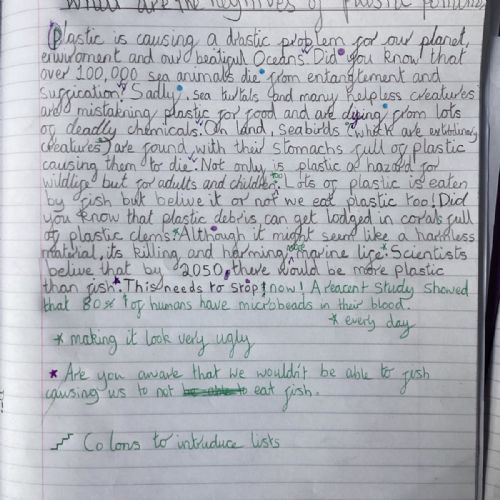 What are the negatives of plastic pollution
Plastic is causing a drastic problem for our planet,
enviuroment and our beatiful Oceans. Did you know that
over 100,000 sea animals die from entanglement and
suffication. Sadly, sea turtals and many helpless creatures
are mistakning plastic for food and are dying from lots
of deadly chemicals. On land, seabirds (which are
creatures) are found with their stomachs full of plastic
causing them to die. Not only is plastic a hazard for
wildlife but for adults and children too. Lots of plastic is eaten
by fish but belive it or not we eat plastic too! Did
you know that plastic debris can get lodged in corals full
of plastic clems.* Although it might seem like a harmless
material, its killing and harming marine life. Scientists
belive that by 2050, there would be more plastic
than fish.* This needs to stop! now! A reacent study showed
that 80% of humans have microbeads in their blood.
* every day
* making it look very ugly
* Are you aware that we wouldn't be able to fish
causing us to not be able to eat fish.
Colons to introduce lists